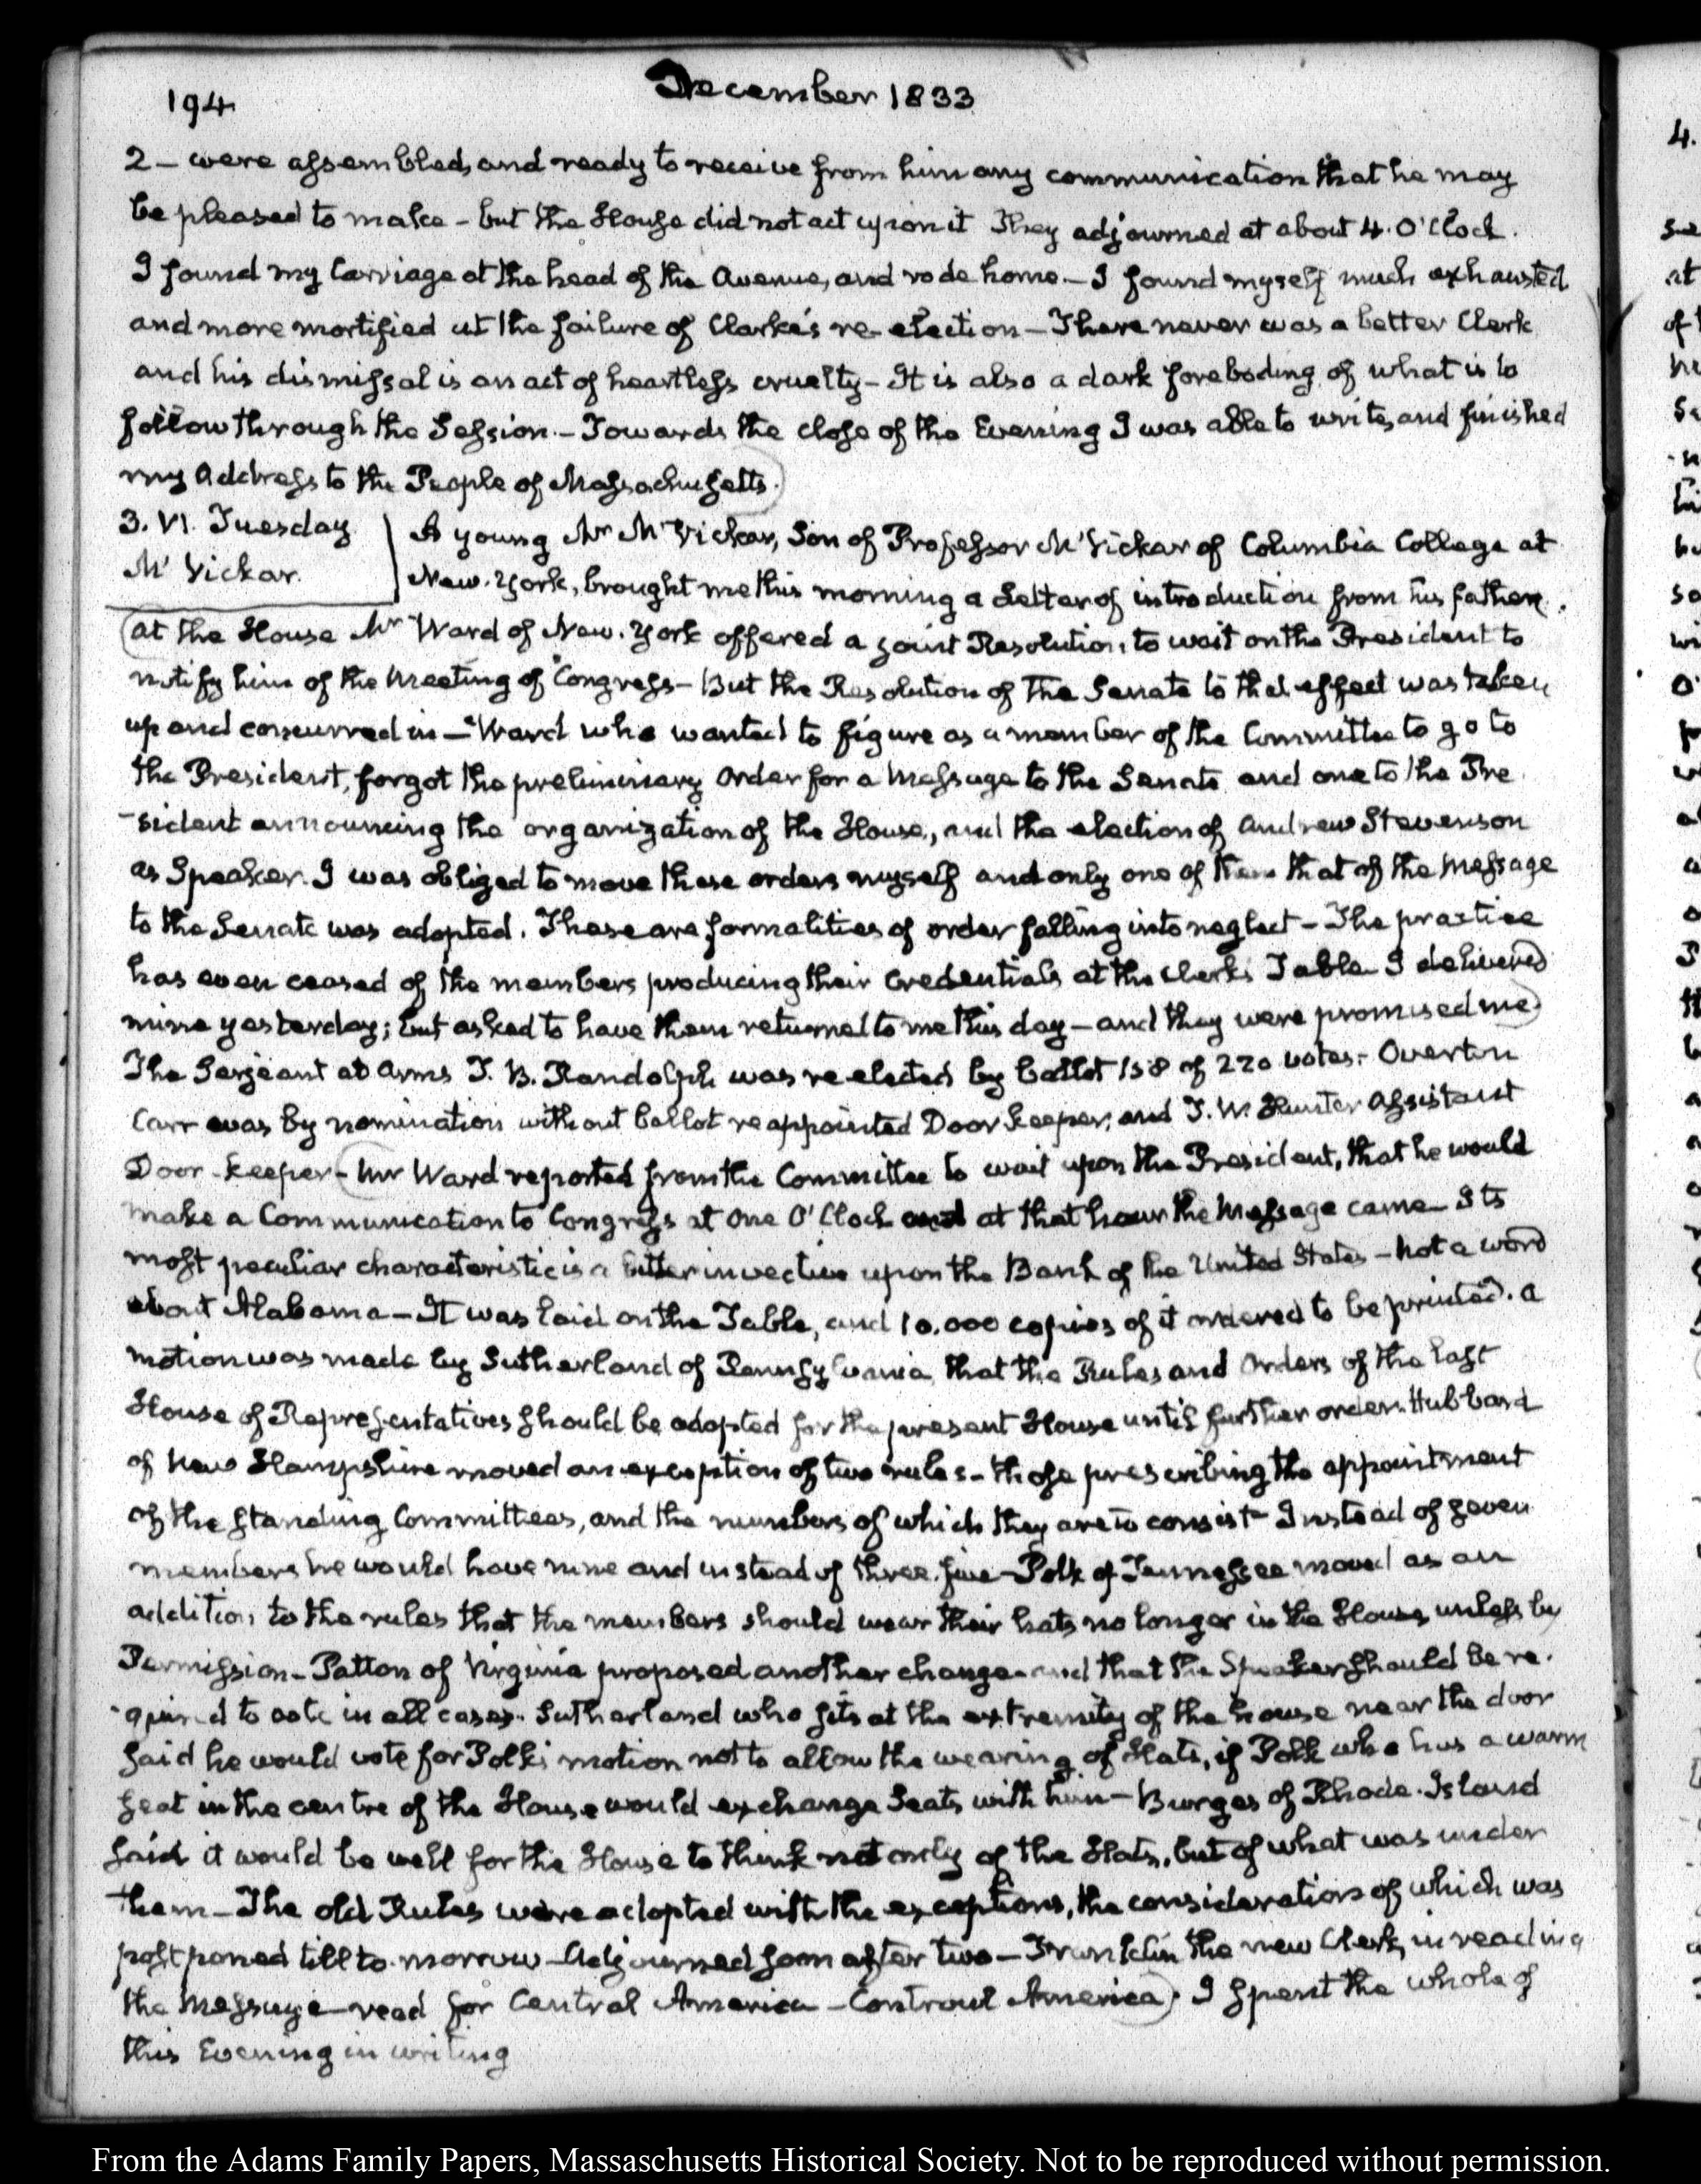 194
December 1833
2 – were assembled, and ready to receive from him any communication that he may
be pleased to make – but the House did not act upon it They adjourned at about 4. O'Clock.
I found my Carriage at the head of the Avenue, and rode home. – I found myself much exhausted
and more mortified at the failure of Clarke's re-election – There never was a better Clerk
and his dismissal is an act of heartless cruelty – It is also a dark foreboding of what is to
follow through the Session. – Towards the close of the Evening I was able to write, and finished
my Address to the People of Massachusetts.
3. VI. Tuesday
A young Mr McVickar, Son of Professor McVickar of Columbia College at
McVickar.
New-York, brought me this morning a Letter of introduction from his father.
At the House Mr Ward of New-York offered a joint Resolution, to wait on the President to
notify him of the Meeting of Congress – But the Resolution of the Senate to that effect was taken
up and concurred in – Ward who wanted to figure as a member of the Committee to go to
the President, forgot the preliminary Order for a Message to the Senate and one to the Pre
-sident announcing the organization of the House, and the election of Andrew Stevenson
as Speaker. I was obliged to move these orders myself and only one of them that of the Message
to the Senate was adopted. These are formalities of order falling into neglect – The practice
has even ceased of the members producing their Credentials at the Clerk's Table I delivered
mine yesterday; but asked to have them returned to me this day – and they were promised me
The Serjeant at Arms J. B. Randolph was re elected by ballot 158 of 220 votes. – Overton
Carr was by nomination without ballot reappointed Door keeper, and J. W. Hunter Assistant
Door-keeper – Mr Ward reported from the Committee to wait upon the President, that he would
make a Communication to Congress at One O'Clock and at that hour the Message came – Its
most peculiar characteristic is a bitter invective upon the Bank of the United States – not a word
about Alabama – It was laid on the Table, and 10.000 copies of it ordered to be printed. A
motion was made by Sutherland of Pennsylvania, that the Rules and Orders of the last
House of Representatives should be adopted for the present House until further order. Hubbard
of New Hampshire moved an exception of two rules – those prescribing the appointment
of the standing Committees, and the numbers of which they are to consist – Instead of seven
members he would have nine and instead of three, five – Polk of Tennessee moved as an
addition to the rules that the members should wear their hats no longer in the House, unless by
Permission – Patton of Virginia proposed another change – and that the Speaker should be re-
-quired to vote in all cases. Sutherland who sits at the extremity of the house near the door
said he would vote for Polk's motion not to allow the wearing of Hats, if Polk who has a warm
seat in the centre of the House would exchange Seats with him – Burges of Rhode-Island
said it would be well for the House to think not only of the Hats, but of what was under
them – The old Rules were adopted with the exceptions, the consideration of which was
postponed till to-morrow – Adjourned soon after two – Franklin the new Clerk, in reading
the Message – read for Central America – Controul America. I spent the whole of
this Evening in writing
From the Adams Family Papers, Massachusetts Historical Society. Not to be reproduced without permission.